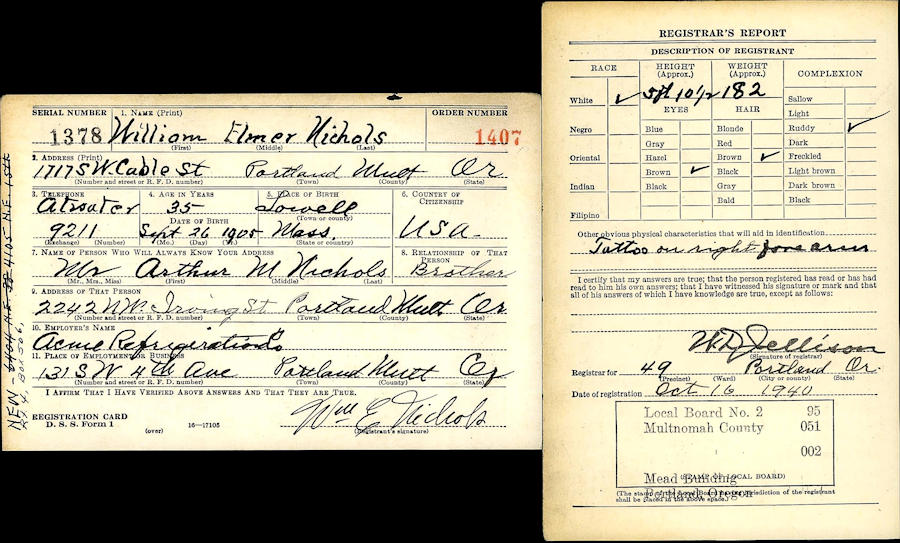 SERIAL NUMBER 1. NAME (Print) ORDER NUMBER
1378 William Elmer Nichols 1407
(First) (Middle) (Last)
2. ADDRESS (Print)
1717 S.W. Cable St Portland Mult Or
(Number and street or R. F. D. number) (Town) (County) (State)
3. TELEPHONE 4. AGE IN YEARS 5. PLACE OF BIRTH 6. COUNTRY OF CITIZENSHIP
Atwater 35 Lowell
(Town or county)
DATE OF BIRTH
9211 Sept 26 1905 Mass. USA
(Exchange) (Number) (Mo.) (Day) (Yr.) (State or country)
7. NAME OF PERSON WHO WILL ALWAYS KNOW YOUR ADDRESS 8. RELATIONSHIP OF THAT PERSON
Mr Arthur M Nichols Brother
(Mr., Mrs., Miss) (First) (Middle) (Last)
9. ADDRESS OF THAT PERSON
2242 N.W. Irving St Portland Mult Or
(Number and street or R. F. D. number) (Town) (County) (State)
10. EMPLOYER'S NAME
Acme Refrigeration Co
11. PLACE OF EMPLOYMENT OR BUSINESS
131 SW 4th Ave Portland Mult Or
(Number and street or R. F. D. number) (Town) (County) (State)
I AFFIRM THAT I HAVE VERIFIED ABOVE ANSWERS AND THAT THEY ARE TRUE.
Wm E Nichols
REGISTRATION CARD
D. S. S. Form 1 (over) 16—17105 (Registrant's signature)
NEW -
REGISTRAR'S REPORT
DESCRIPTION OF REGISTRANT
RACE HEIGHT (Approx.) WEIGHT (Approx.) COMPLEXION
White ✓ 5 ft 10 1/2 182 Sallow
EYES HAIR Light
Negro Blue Blonde Ruddy ✓
Gray Red Dark
Oriental Hazel Brown ✓ Freckled
Brown ✓ Black Light brown
Indian Black Gray Dark brown
Bald Black
Filipino
Other obvious physical characteristics that will aid in identification
Tattoo on right forearm
I certify that my answers are true; that the person registered has read or has had
read to him his own answers; that I have witnessed his signature or mark and that
all of his answers of which I have knowledge are true, except as follows:
W.D. Jellison
(Signature of registrar)
Registrar for 49 Portland Or.
(Precinct) (Ward) (City or county) (State)
Date of registration Oct 16 1940
Local Board No. 2 95
Multnomah County 051
002
Mead Building
(STAMP OF LOCAL BOARD)
Portland Oregon
(The stamp of the Local Board having jurisdiction of the registrant
shall be placed in the above space.)